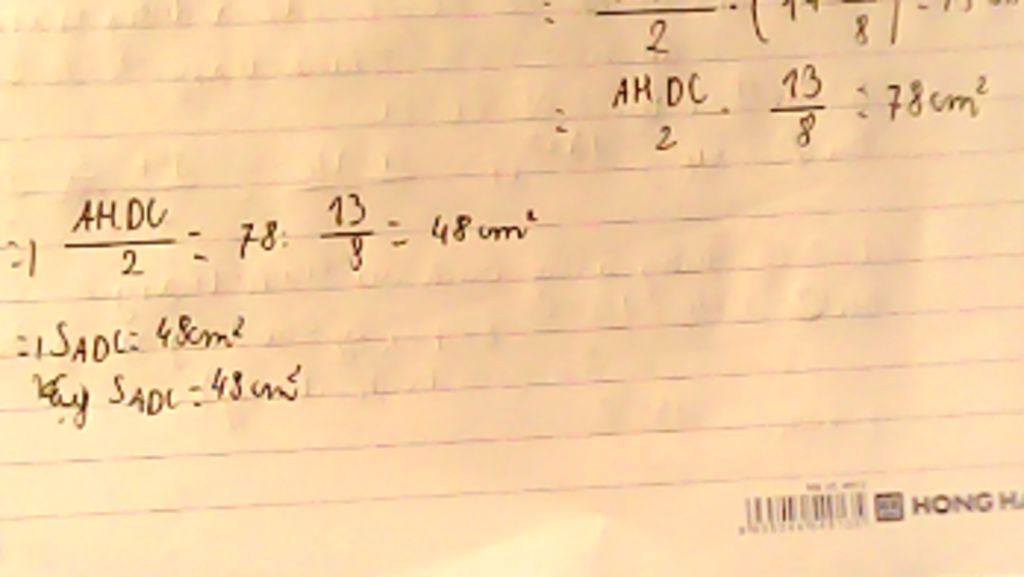 = AH.DC/2 . 13/8 = 78cm²
=> AH.DC/2 = 78 : 13/8 = 48cm²
=> S_ADC = 48cm²
Vậy S_ADC = 48cm²
HONG HA